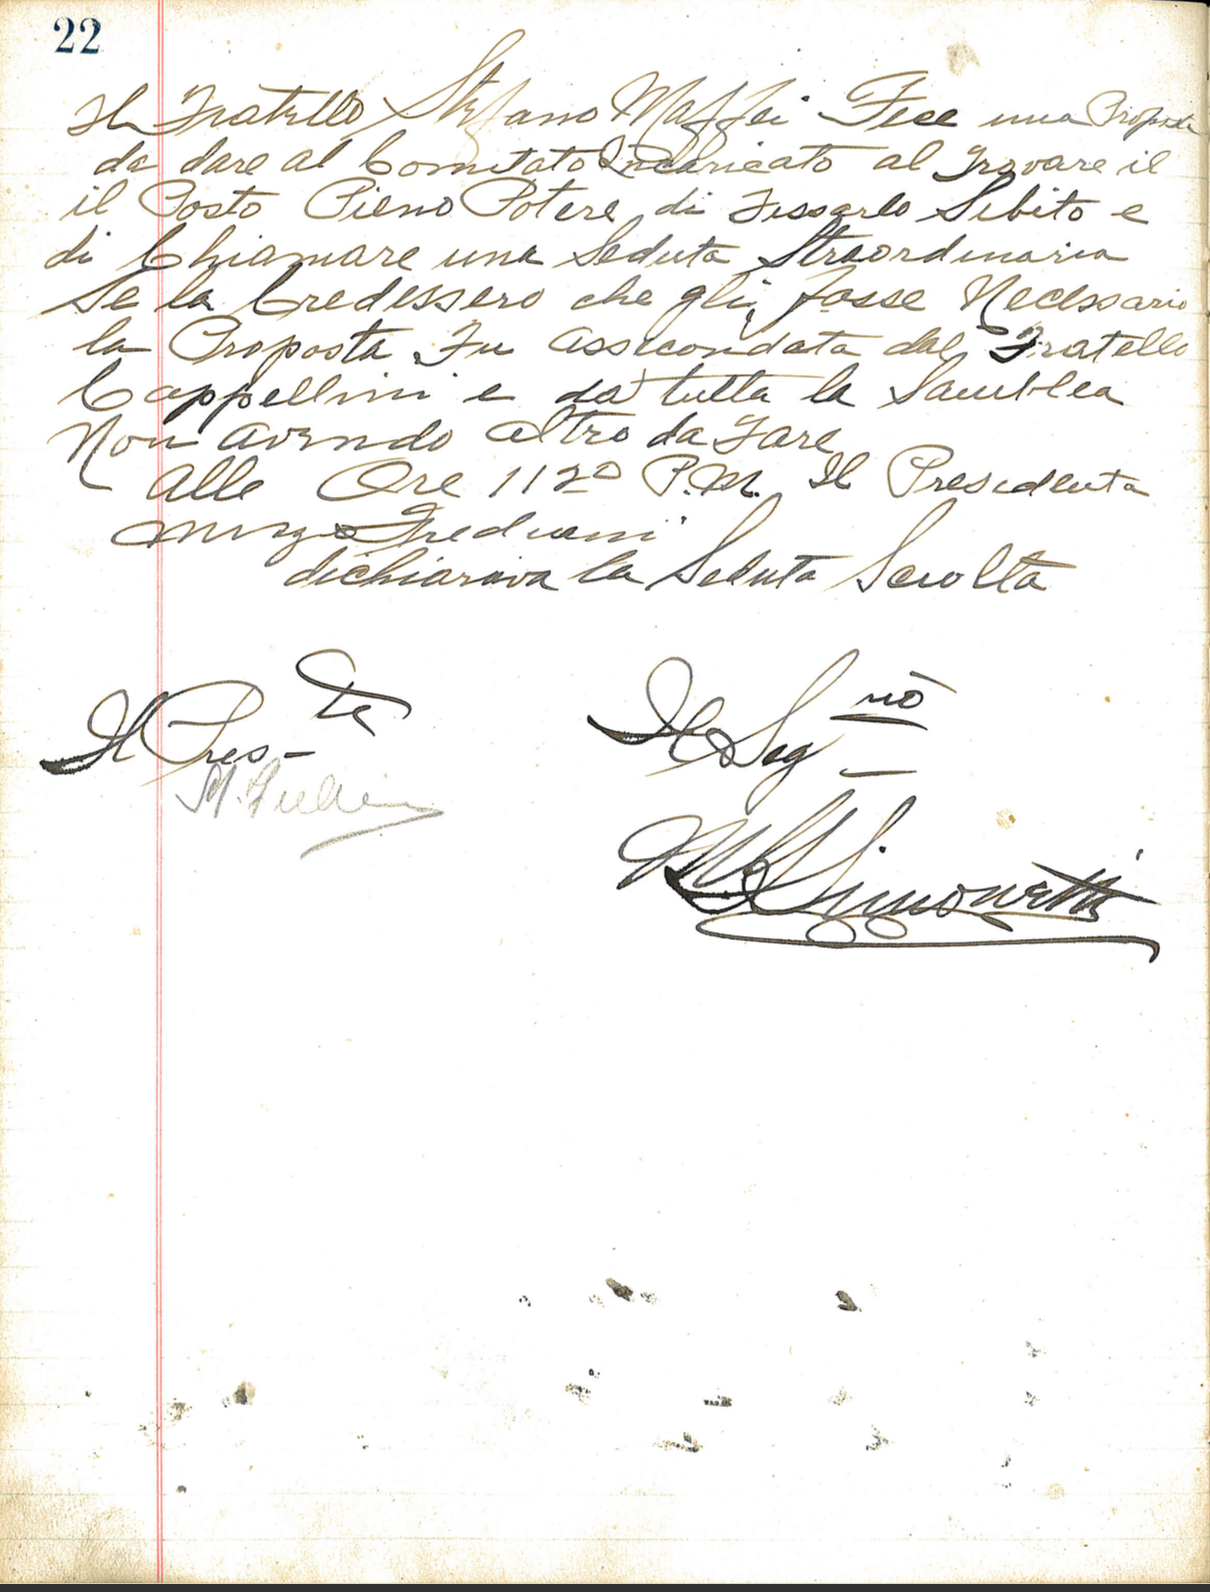 22
Il Fratello Stefano Maffei Fece una Proposta
da dare al Comitato Incaricato al Trovare il
il Posto Pieno Potere di Fissarlo Sibito e
di Chiamare una Seduta Straordinaria
Se la Credessero che gli fosse Necessario
la Proposta Fu assecondata dal Fratello
Cappellini e da tutta la Samblea
Non avendo altro da Fare
alle Ore 11 20 P.M. Il Presidenta
Frediani
dichiarava la Seduta Sciolta
Il Pres-te
Il Segrio
M.
Simonetti